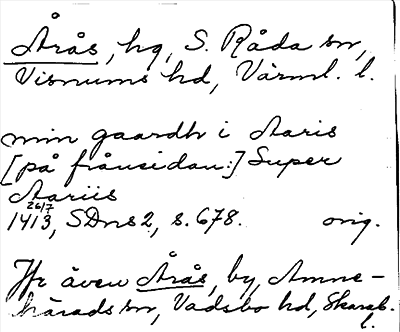 Årås, hg, S. Råda sn,
Visnums hd, Värml. l.
min gaardh i Aaris
[på frånsidan:] Super
Aariis
26/7
1413, SDns 2, s. 678. orig.
Jfr även Årås, by, Amne-
härads sn, Vadsbo hd, Skarab.
l.